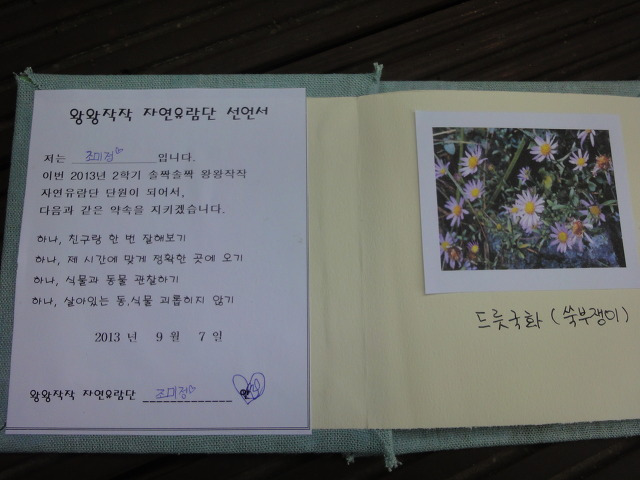 왕왕작작 자연유람단 선언서
저는 조미정 입니다.
이번 2013년 2학기 솔짝솔짝 왕왕작작
자연유람단 단원이 되어서,
다음과 같은 약속을 지키겠습니다.
하나, 친구랑 한 번 잘해보기
하나, 제 시간에 맞게 정확한 곳에 오기
하나, 식물과 동물 관찰하기
하나, 살아있는 동,식물 괴롭히지 않기
2013 년 9 월 7 일
왕왕작작 자연유람단 조미정
드릇국화 (쑥부쟁이)